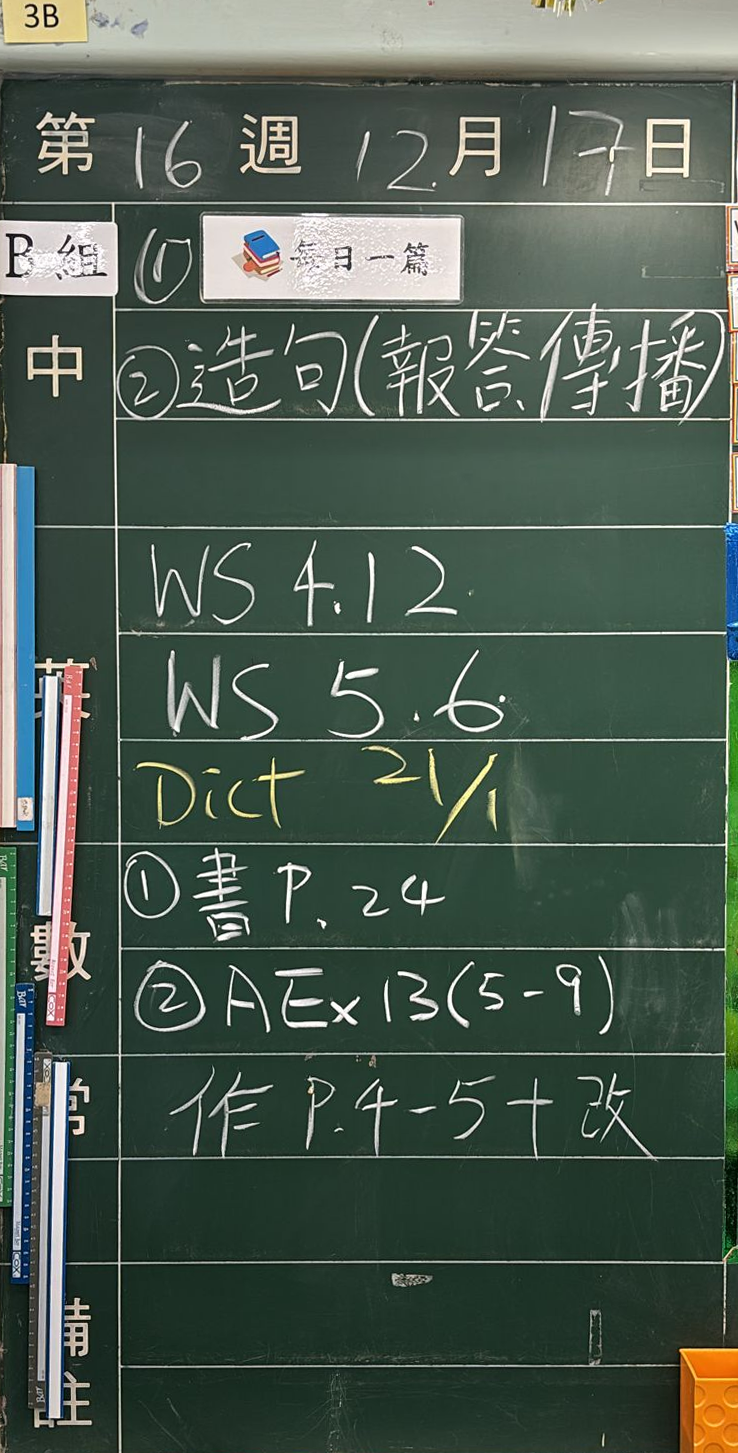 3B
第 16 週 12 月 17 日
B 組 ① 每日一篇
中 ② 造句(報答、傳播)
WS 4.12
WS 5.6
英
Dict 21/1
① 書 P. 24
數 ② AEx 13 (5-9)
常 作 P.4-5 + 改
備註